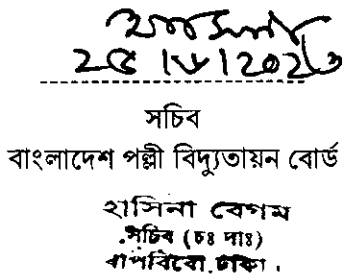 ২৫|৬|২০২৩
সচিব
বাংলাদেশ পল্লী বিদ্যুতায়ন বোর্ড
হাসিনা বেগম
সচিব (চঃ দাঃ)
বাপবিবো, ঢাকা।